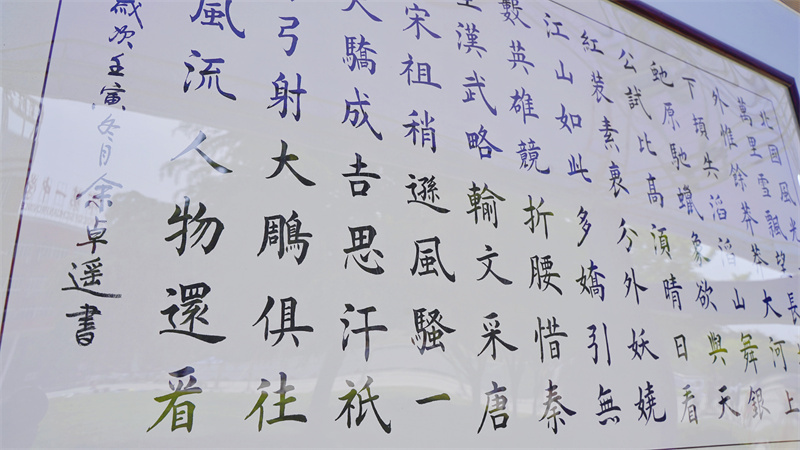 北國風光
萬里雪飄望長
外惟餘莽莽大河上
下頓失滔滔山舞銀
虵原馳蠟象欲與天
公試比高湏晴日看
紅裝素裹分外妖嬈
江山如此多嬌引無
數英雄競折腰惜秦
漢武略輸文采唐
宋祖稍遜風騷一
天驕成吉思汗祇
弓射大雕俱往
風流人物還看
歲次壬寅冬月余卓遥書